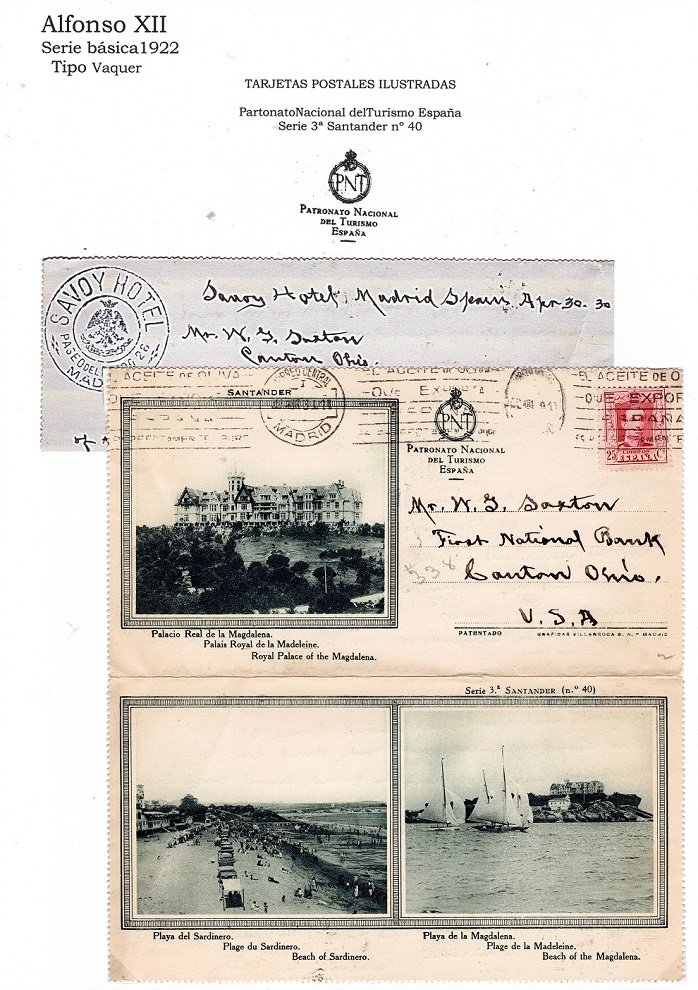 Alfonso XII
Serie básica1922
Tipo Vaquer
TARJETAS POSTALES ILUSTRADAS
PartonatoNacional delTurismo España
Serie 3ª Santander nº 40
PNT
PATRONATO NACIONAL
DEL TURISMO
ESPAÑA
SAVOY HOTEL
PASEO DEL PRADO 26
MADRID
Savoy Hotel, Madrid Spain Apr 30. 30
Mr. W. G. Saxton
Canton Ohio.
EL ACEITE DE OLIVA
QUE EXPORTA
ESPAÑA
CORREO CENTRAL
MADRID
EL ACEITE DE O
QUE EXPOR
PAÑA
SANTANDER
PNT
PATRONATO NACIONAL
DEL TURISMO
ESPAÑA
25 CORREOS 25
ESPAÑA
Mr. W. G. Saxton
First National Bank
Canton Ohio.
U.S.A
PATENTADO
GRAFICAS VILLARROCA S. A. MADRID
Palacio Real de la Magdalena.
Palais Royal de la Madeleine.
Royal Palace of the Magdalena.
Serie 3.ª SANTANDER (n.º 40)
Playa del Sardinero.
Plage du Sardinero.
Beach of Sardinero.
Playa de la Magdalena.
Plage de la Madeleine.
Beach of the Magdalena.